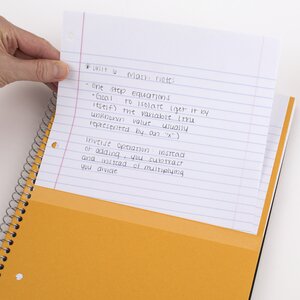 * Unit 6 Math Note:
- One Step Equations
- Goal to isolate (get it by
itself) the variable (the
unknown value usually
represented by an "x")
Inverse Operation instead
of adding, you subtract
and instead of multiplying
you divide